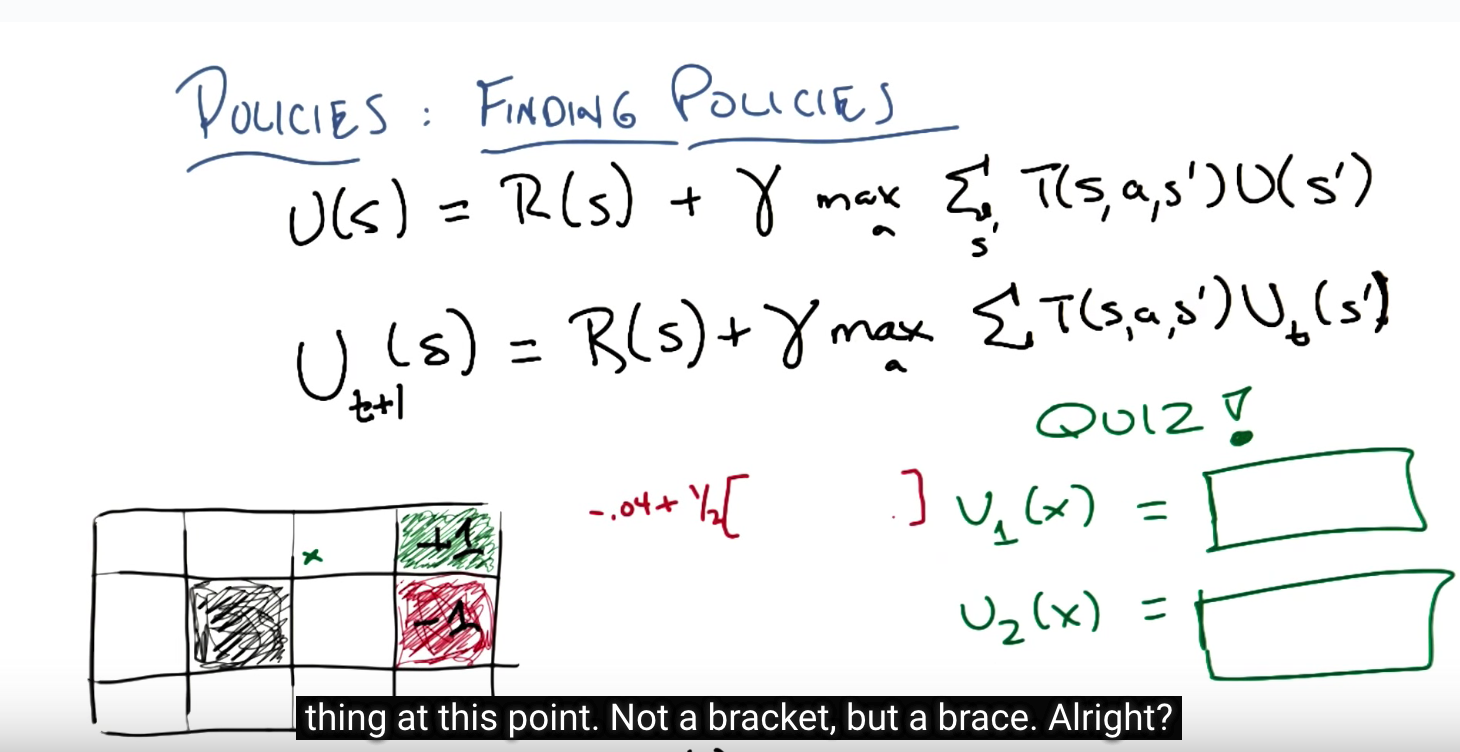 POLICIES : FINDING POLICIES
U(s) = R(s) + γ max_a Σ_s' T(s,a,s')U(s')
U_t+1(s) = R(s) + γ max_a Σ T(s,a,s')U_t(s')
QUIZ!
-.04 + 1/2[ .] U_1(x) =
x +1
U_2(x) =
-1
thing at this point. Not a bracket, but a brace. Alright?